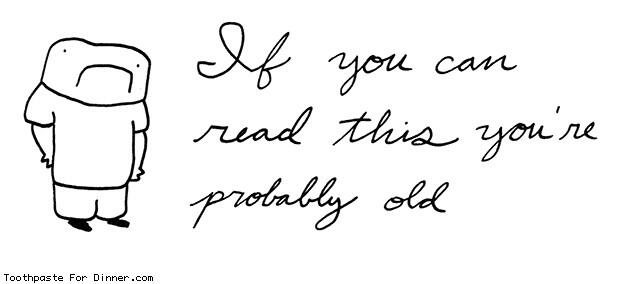 If you can
read this you're
probably old
Toothpaste For Dinner.com